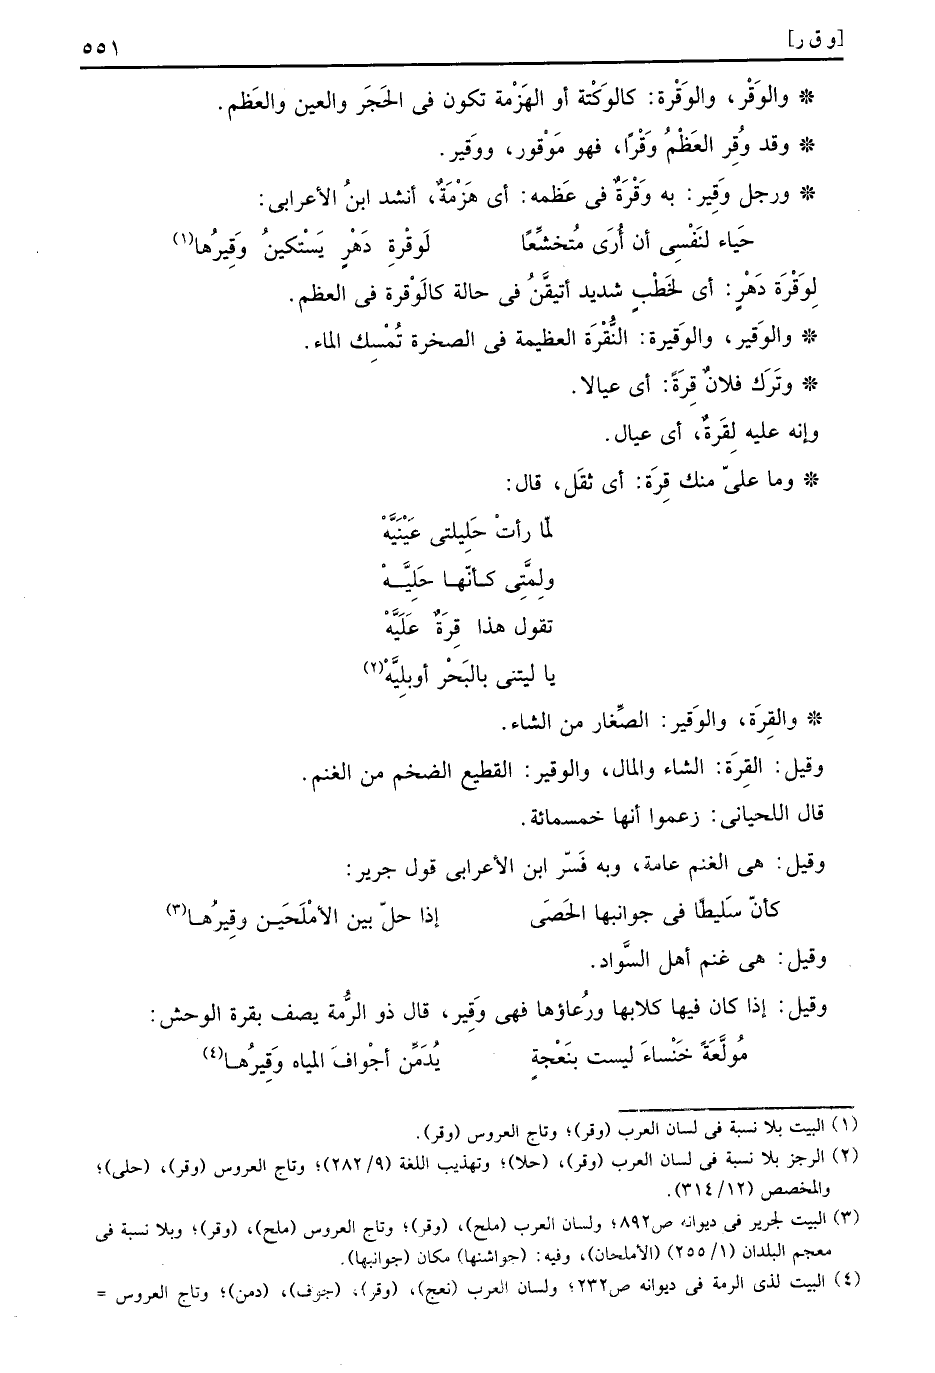 [و ق ر] ٥٥١
❊ والوَقْر، والوَقْرة: كالوَكْتة أو الهَزْمة تكون فى الحَجَر والعين والعَظم.
❊ وقد وُقِر العَظْمُ وَقْرًا، فهو مَوْقور، ووَقير.
❊ ورجل وَقِير: به وَقْرَةٌ فى عَظمه: أى هَزْمَةٌ، أنشد ابنُ الأعرابى:
حَيَاء لنَفْسِى أن أُرَى مُتخشِّعًا لَوقْرةِ دَهْرٍ يَسْتكينُ وَقِيرُها(١)
لِوَقْرَة دَهْرٍ: أى لخَطْبٍ شديد أتيقَّنُ فى حالة كالَوْقرة فى العظم.
❊ والوَقير، والوَقيرة: النُّقْرَة العظيمة فى الصخرة تُمْسِك الماء.
❊ وتَرَك فلانٌ قِرَةً: أى عيالا.
وإنه عليه لِقَرةٌ، أى عيال.
❊ وما علىّ منك قِرَة: أى ثقَل، قال:
لمّا رأتْ حَلِيلتى عَيْنَيَّهْ
ولِمَّتِى كـأنّهـا حَلِيَّـــهْ
تقول هذا قِرَةٌ عَلَيَّهْ
يا ليتنى بالبَحْر أوبِليَّهْ(٢)
❊ والقِرَة، والوَقير: الصِّغار من الشاء.
وقيل: القِرَة: الشاء والمال، والوقير: القطيع الضخم من الغنم.
قال اللحيانى: زعموا أنها خمسمائة.
وقيل: هى الغنم عامة، وبه فَسّر ابن الأعرابى قول جرير:
كأنّ سَليطًا فى جوانبها الحَصَى إذا حلّ بين الأمْلَحَيـن وقِيرُهـا(٣)
وقيل: هى غنم أهل السَّواد.
وقيل: إذا كان فيها كلابها ورُعاؤها فهى وَقِير، قال ذو الرُّمة يصف بقرة الوحش:
مُولَّعَةً خَنْساءَ ليست بنَعْجةٍ يُدَمِّن أجْوافَ المياه وَقِيرُهـا(٤)
(١) البيت بلا نسبة فى لسان العرب (وقر)؛ وتاج العروس (وقر).
(٢) الرجز بلا نسبة فى لسان العرب (وقر)، (حلا)؛ وتهذيب اللغة (٩/ ٢٨٢)؛ وتاج العروس (وقر)، (حلى)؛
والمخصص (١٢/ ٣١٤).
(٣) البيت لجرير فى ديوانه ص٨٩٢؛ ولسان العرب (ملح)، (وقر)؛ وتاج العروس (ملح)، (وقر)؛ وبلا نسبة فى
معجم البلدان (١/ ٢٥٥) (الأملحان)، وفيه: (جواشنها) مكان (جوانبها).
(٤) البيت لذى الرمة فى ديوانه ص٢٣٢؛ ولسان العرب (نعج)، (وقر)، (جوف)، (دمن)؛ وتاج العروس =